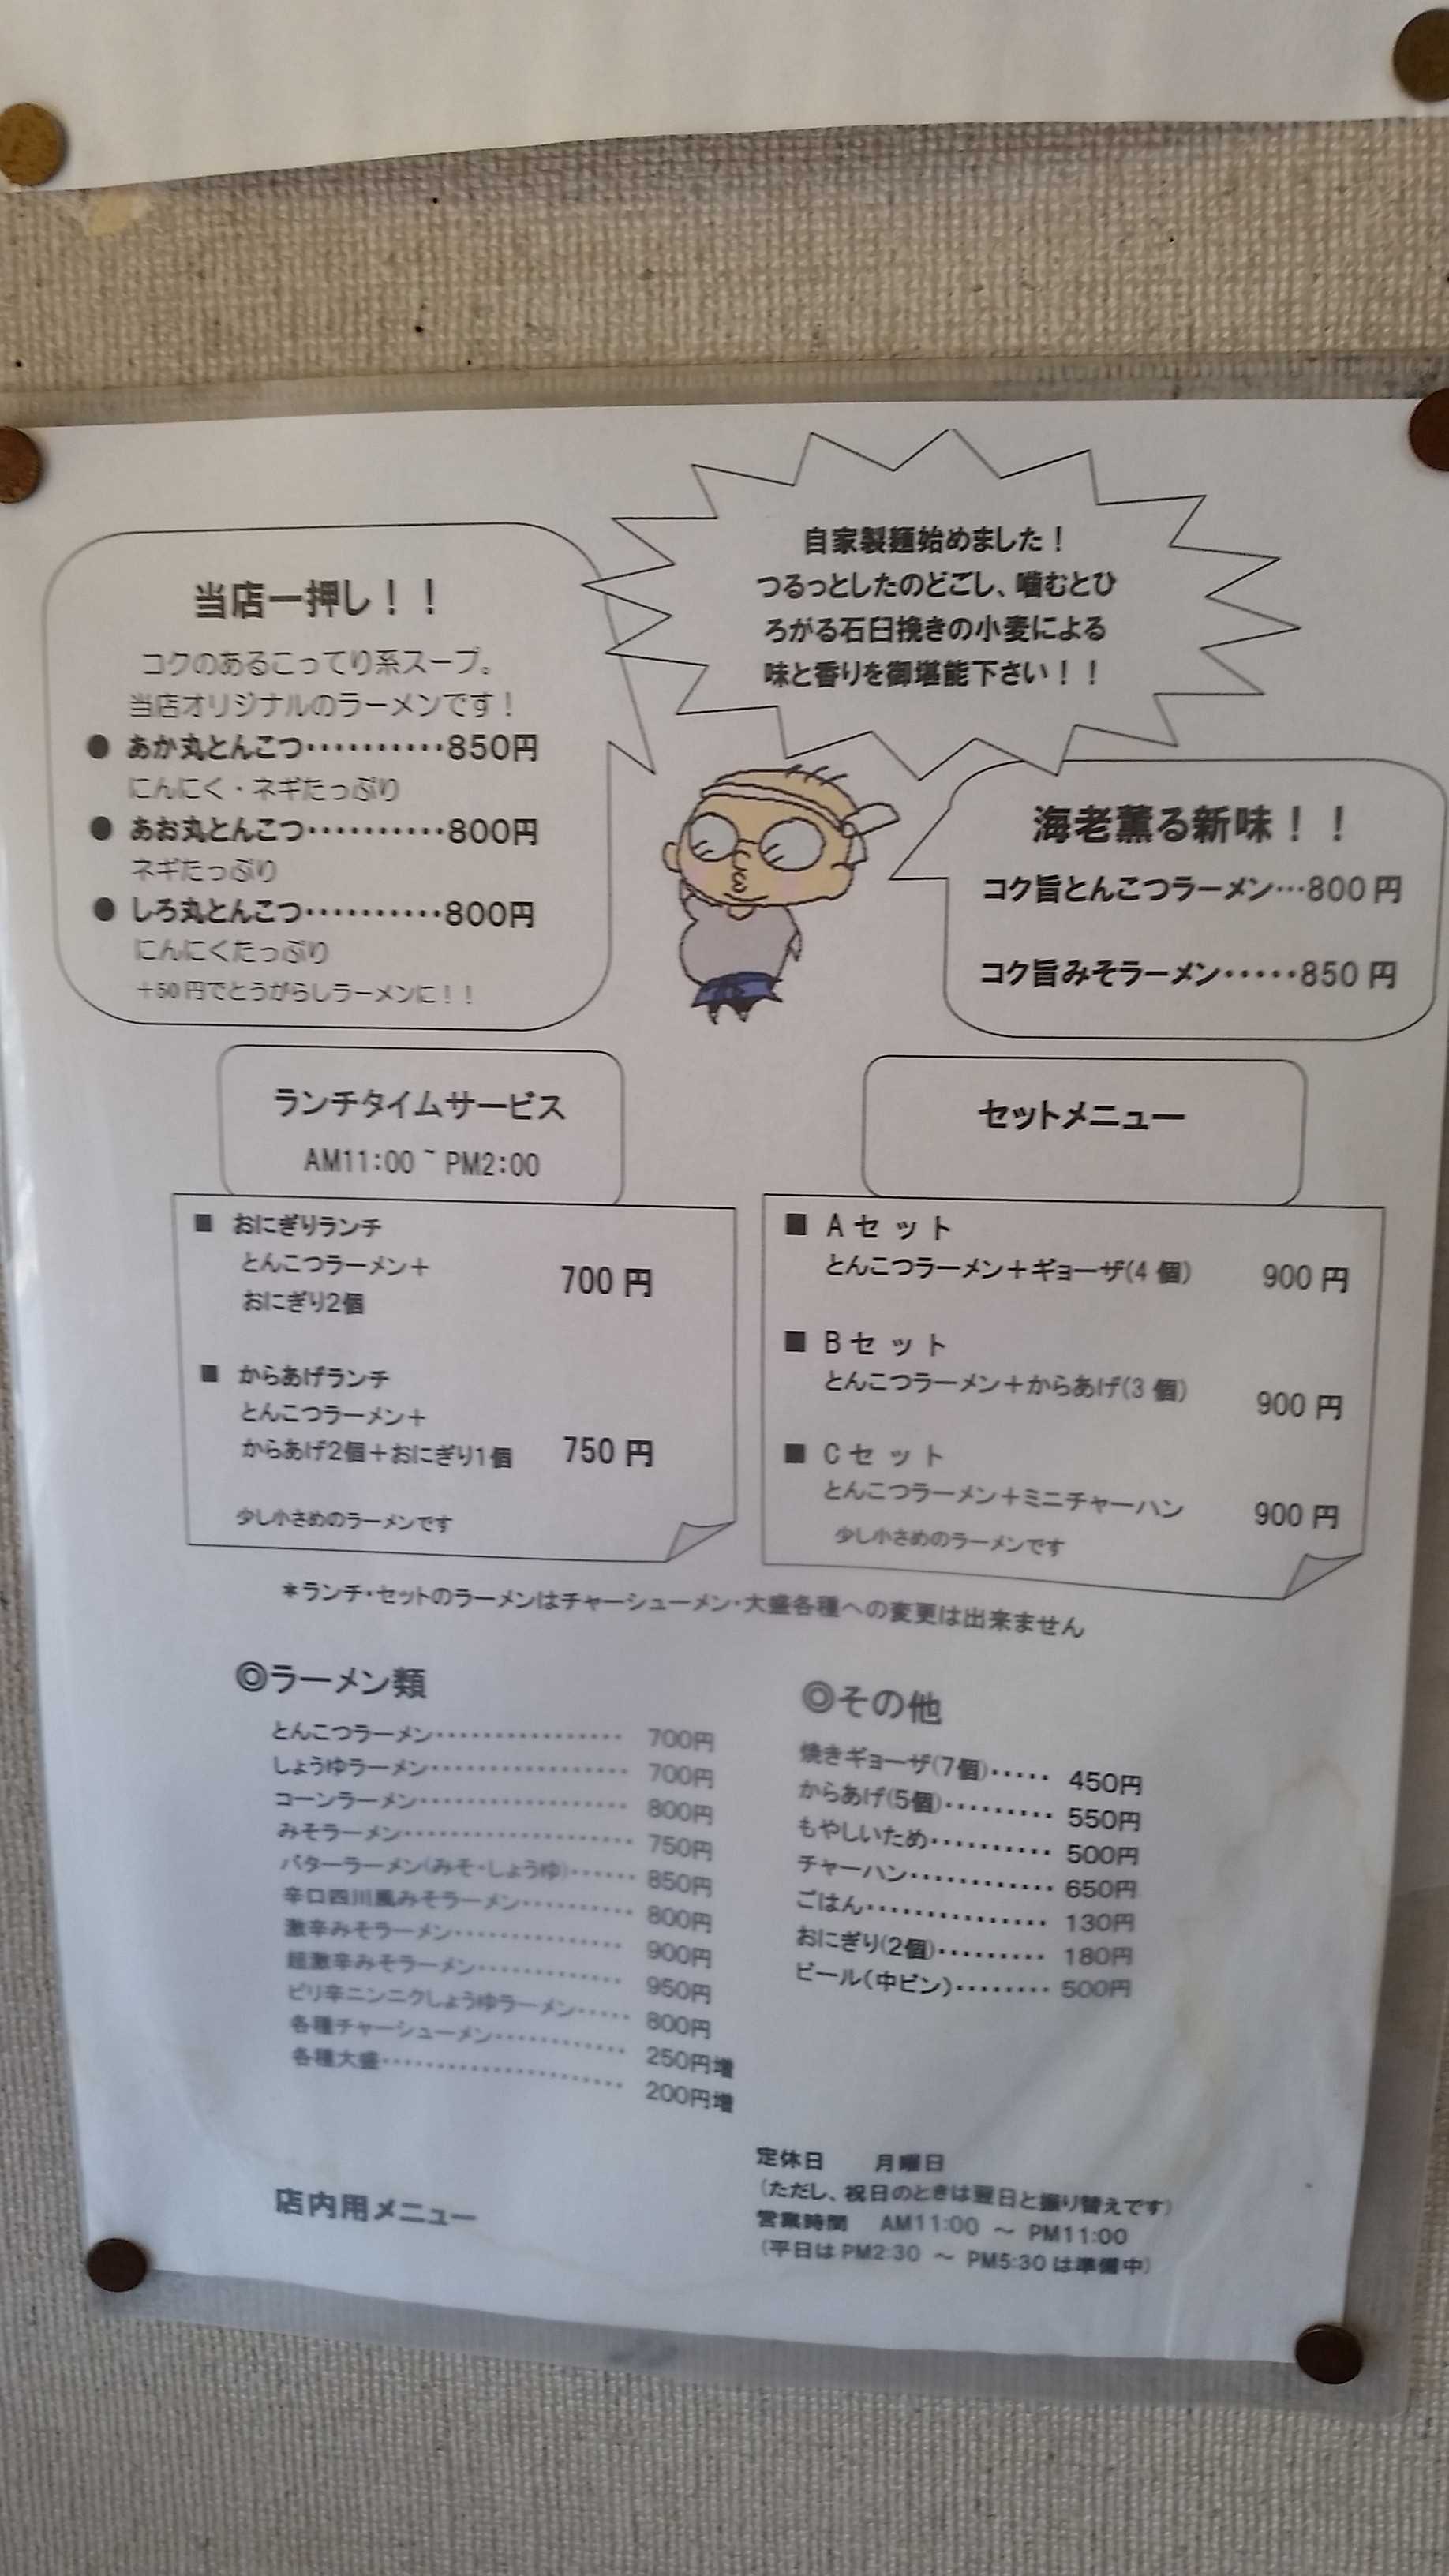 自家製麺始めました！
つるっとしたのどごし、噛むとひ
ろがる石臼挽きの小麦による
味と香りを御堪能下さい！！
当店一押し！！
コクのあるこってり系スープ。
当店オリジナルのラーメンです！
● あか丸とんこつ‥‥‥‥‥850円
にんにく・ネギたっぷり
● あお丸とんこつ‥‥‥‥‥800円
ネギたっぷり
● しろ丸とんこつ‥‥‥‥‥800円
にんにくたっぷり
＋50円でとうがらしラーメンに！！
海老薫る新味！！
コク旨とんこつラーメン…800円
コク旨みそラーメン‥‥‥850円
ランチタイムサービス
AM11:00~PM2:00
■ おにぎりランチ
とんこつラーメン＋
おにぎり2個 700円
■ からあげランチ
とんこつラーメン＋
からあげ2個＋おにぎり1個 750円
少し小さめのラーメンです
セットメニュー
■ Aセット
とんこつラーメン＋ギョーザ(4個) 900円
■ Bセット
とんこつラーメン＋からあげ(3個) 900円
■ Cセット
とんこつラーメン＋ミニチャーハン 900円
少し小さめのラーメンです
＊ランチ・セットのラーメンはチャーシューメン・大盛各種への変更は出来ません
◎ラーメン類
とんこつラーメン‥‥‥‥‥‥‥‥ 700円
しょうゆラーメン‥‥‥‥‥‥‥‥ 700円
コーンラーメン‥‥‥‥‥‥‥‥‥ 800円
みそラーメン‥‥‥‥‥‥‥‥‥‥ 750円
バターラーメン(みそ・しょうゆ)‥‥‥ 850円
辛口四川風みそラーメン‥‥‥‥‥ 800円
激辛みそラーメン‥‥‥‥‥‥‥ 900円
超激辛みそラーメン‥‥‥‥‥‥ 950円
ピリ辛ニンニクしょうゆラーメン‥‥‥ 800円
各種チャーシューメン‥‥‥‥‥‥ 250円増
各種大盛‥‥‥‥‥‥‥‥‥‥‥ 200円増
◎その他
焼きギョーザ(7個)‥‥‥ 450円
からあげ(5個)‥‥‥‥‥ 550円
もやしいため‥‥‥‥‥ 500円
チャーハン‥‥‥‥‥‥ 650円
ごはん‥‥‥‥‥‥‥‥ 130円
おにぎり(2個)‥‥‥‥‥ 180円
ビール(中ビン)‥‥‥‥ 500円
店内用メニュー
定休日 月曜日
(ただし、祝日のときは翌日と振り替えです)
営業時間 AM11:00 ～ PM11:00
(平日はPM2:30 ～ PM5:30は準備中)